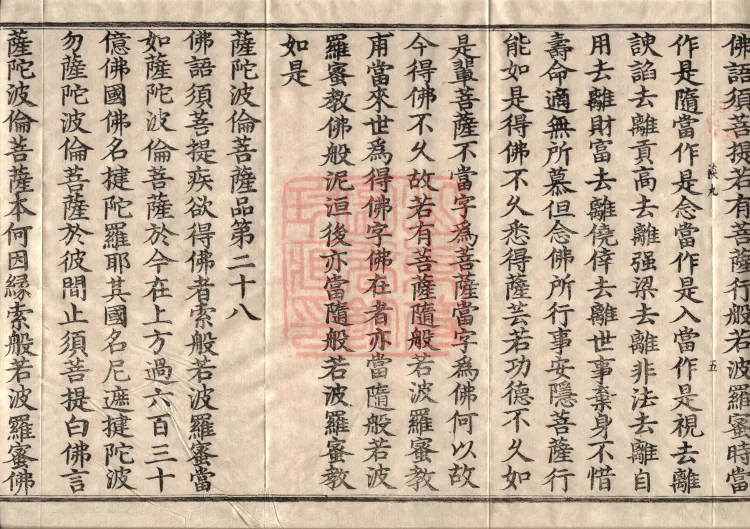 佛語須菩提若有菩薩行般若波羅蜜時當
作是隨當作是念當作是入當作是視去離
諛諂去離貢高去離强梁去離非法去離自
用去離財富去離僥倖去離世事棄身不惜
壽命適無所慕但念佛所行事安隱菩薩行
能如是得佛不久悉得薩芸若功德不久如
是輩菩薩不當字為菩薩當字為佛何以故
今得佛不久故若有菩薩隨般若波羅蜜教
甫當來世為得佛字佛在者亦當隨般若波
羅蜜教佛般泥洹後亦當隨般若波羅蜜教
如是
薩陀波倫菩薩品第二十八
佛語須菩提疾欲得佛者索般若波羅蜜當
如薩陀波倫菩薩於今在上方過六百三十
億佛國佛名揵陀羅耶其國名尼遮揵陀波
勿薩陀波倫菩薩於彼間止須菩提白佛言
薩陀波倫菩薩本何因緣索般若波羅蜜佛